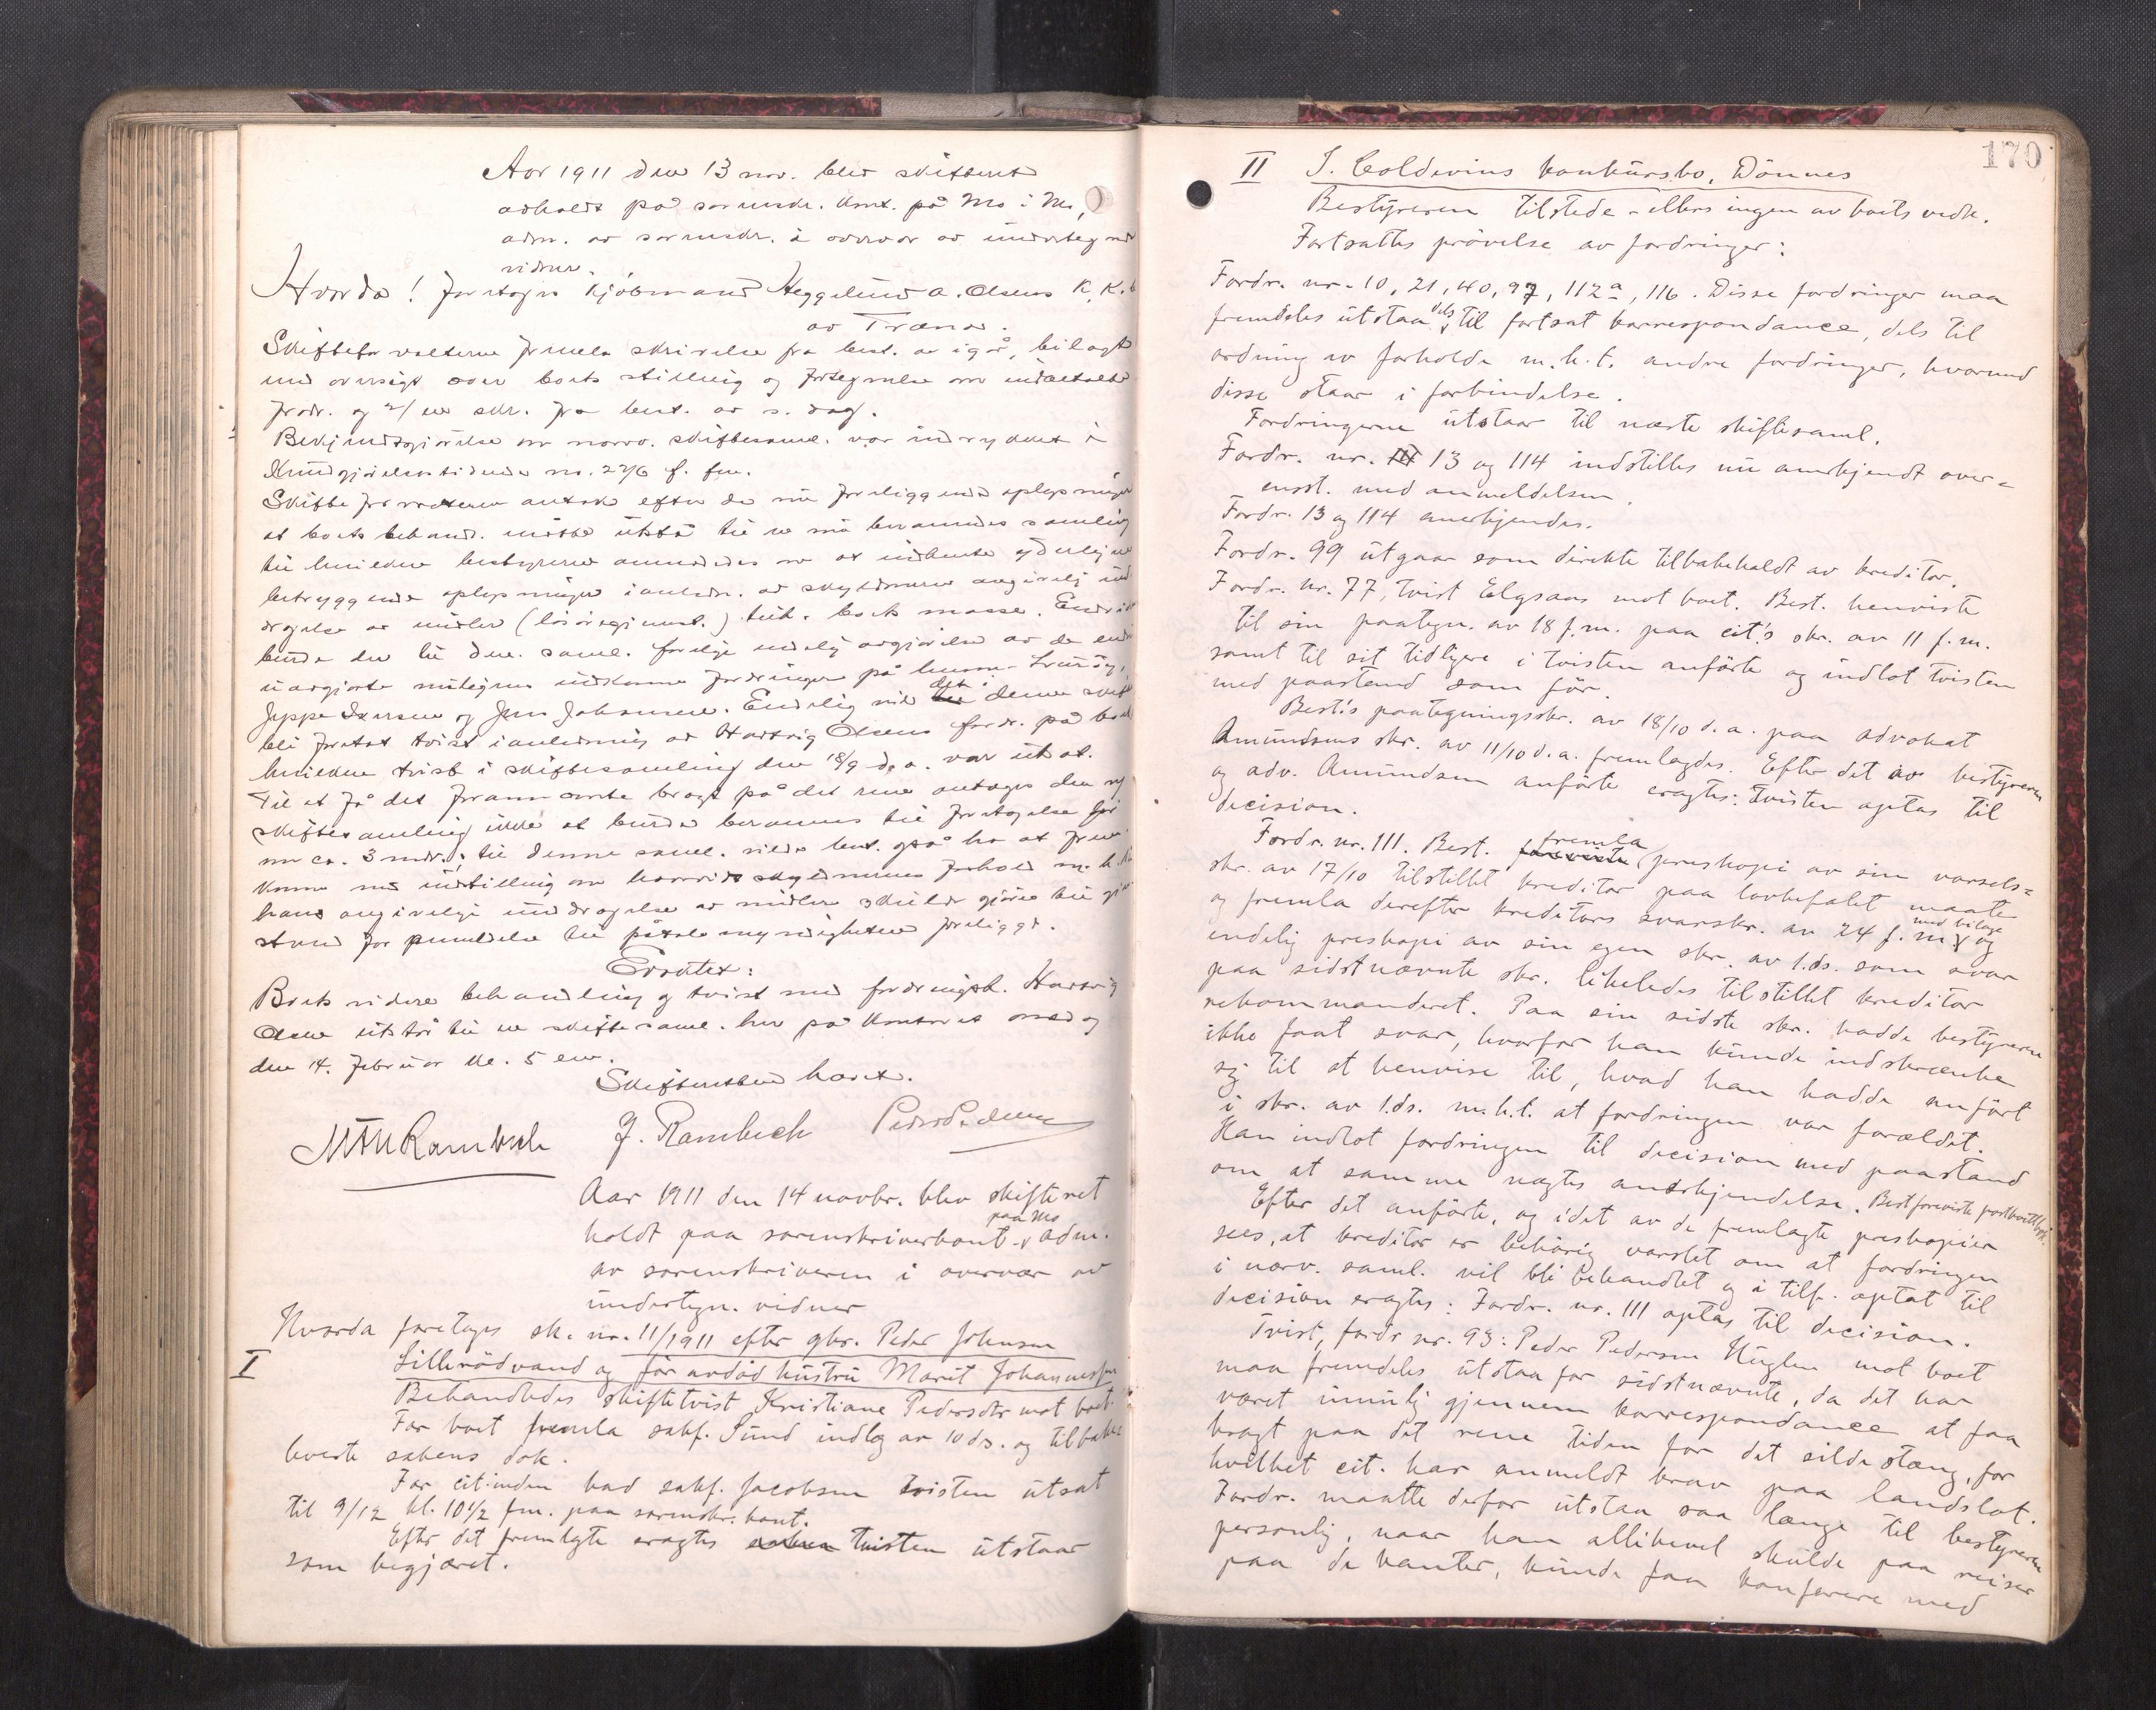 Aar 1911 den 13 nov. blev skifteret
avholdt på sorenskr. kont. på Mo i Mo,
adm. av sorenskr. i overvær av undertegnede
vidner.
Hvorda! foretoges kjøbmand Heggelund A. Olsens K.K.b
av Træna.
Skifteforvalteren fremla skrivelse fra best. av igår, bilagt
med oversigt over boets stilling og fortegnelse om indbetalte
fordr. og 2/ skr. fra best. av s. dag.
Bekjendtgjørelse om nærv. skiftesaml. var indrykket i
Kundgjørelsestidende no. 226 f. fm.
Skifteforvalteren antok efter de nu foreliggende oplysninger
at boets behandl. måtte utstå til en ny berammet samling
til hvilken bestyreren anmodedes om at indhente yderligere
betryggende oplysninger i anledn. av skyldnerens angivelig ind
dragelse av midler (løsøregjenst.) tilh. boets masse. Endvid
burde der til den. saml. foreligge endelig avgjørelse av de endnu
uavgjorte indkomne fordringer på
Jeppe Iversen og Jens Johansen. Endelig vil det i denne skift
bli foretat tvist i anledning av Hartvig Olsens fordr. på boet
hvilken tvist i skiftesamling den 18/9 d.a. var utsat.
Til at få det forannævnte bragt på det rene antoges den ny
skiftesamling ikke at burde berammes til foretagelse før
om ca. 3 mndr.; til denne saml. vilde best. også ha at frem
komme med indstilling om hvorvidt skyldnerens forhold m.h.t.
hans angivelige inddragelse av midler skulde gjøres til gjen
stand for anmeldelse til påtalemyndigheten foreligger.
Eragtet:
Boets videre behandling og tvist med fordringsh. Hartvig
Olsen utstår til en skiftesaml. her på kontoret onsdag
den 14. februar kl. 5 em.
Skifteretten hævet.
M Rambech J. Rambech Peder Pedersen
Aar 1911 den 14 novbr. blev skifteret
holdt paa sorenskriverkont. paa Mo adm.
av sorenskriveren i overvær av
undertegn. vidner
Hvorda foretoges sk. nr. 11/1911 efter gbr. Peder Johnsen
I Lillerødvand og før avdød hustru Marit Johannesen
Behandledes skiftetvist Kristiane Pedersdtr mot boet.
For boet fremla sakf. Sund indlæg av 10 ds. og tilbake
leverte sakens dok.
For cit.inden bad sakf. Jacobsen tvisten utsat
til 9/12 kl. 10 1/2 fm. paa sorenskr.kont.
Efter det fremlagte eragtes saken tvisten utstaar
som begjæret.
170
II J. Coldevins konkursbo, Dönnes
Bestyreren tilstede - ellers ingen av boets vedk.
Fortsattes prövelse av fordringer:
Fordr. nr. 10, 21, 40, 97, 112a, 116. Disse fordringer maa
fremdeles utstaa dels til fortsat korrespondance, dels til
ordning av forholde m.h.t. andre fordringer, hvormed
disse staar i forbindelse.
Fordringerne utstaar til næste skiftesaml.
Fordr. nr. 13 og 114 indstilles nu anerkjendt over=
ensst. med anmeldelsen.
Fordr. 13 og 114 anerkjendes.
Fordr. 99 utgaar som direkte tilbakekaldt av kreditor.
Fordr. nr. 77, tvist Elgsaas mot boet. Best. henviste
til sin paategn. av 18 f.m. paa cit.'s skr. av 11 f.m.
samt til sit tidligere i tvisten anförte og indlot tvisten
med paastand som för.
Best.'s paategningsskr. av 18/10 d.a. paa advokat
Amundsens skr. av 11/10 d.a. fremlagdes. Efter det av bestyreren
og adv. Amundsen anförte eragtes: Tvisten optas til
decision.
Fordr. nr. 111. Best. foreviste fremla preskopi av sin varsels=
skr. av 17/10 tilstillet kreditor paa lovbefalet maate
og fremla derefter kreditors svarskr. av 24 f.m. med bilage og
endelig preskopi av sin egen skr. av 1. ds. som svar
paa sidstnævnte skr. likeledes tilstillet kreditor
rekommanderet. Paa sin sidste skr. hadde bestyreren
ikke faat svar, hvorfor han kunde indskrænke
sig til at henvise til, hvad han hadde anfört
i skr. av 1. ds. m.h.t. at fordringen var forældet.
Han indlot fordringen til decision med paastand
om at samme nægtes anerkjendelse. Best foreviste postkvitt.bok.
Efter det anförte, og idet av de fremlagte preskopier
sees, at kreditor er behörig varslet om at fordringen
i nærv. saml. vil bli behandlet og i tilf. optat til
decision eragtes: Fordr. nr. 111 optas til decision.
Tvist, fordr nr. 93: Peder Pedersen Huglen mot boet
maa fremdeles utstaa for sidstnævnte, da det har
været umulig gjennem korrespondance at faa
bragt paa det rene tiden for det sildestæng, for
hvilket cit. har anmeldt krav paa landslot.
Fordr. maatte derfor utstaa saa længe til bestyreren
personlig, naar han allikevel skulde paa reiser
paa de kanter, kunde faa konferere med